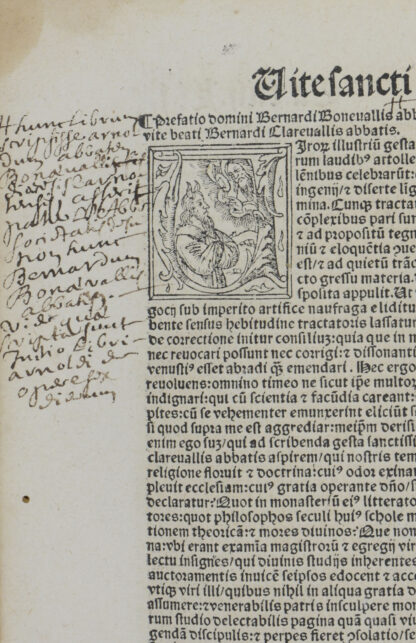 Vite sancti
Prefatio domini Bernardi Boneuallis abb
vite beati Bernardi Clareuallis abbatis.
Irorū illustriū gesta
rum laudibꝰ artolla
lēnibus celebrarūt:
ingenij/⁊ diserte lig
mina. Cunqꝫ tractat
cōplexibus pari sunt
⁊ ad propositū tegm
niū ⁊ eloquētia
est/⁊ ad quietū trāc
cto gressu materia.
sposita appulit. Ut
gocij sub imperito artifice naufraga eliditu
bente sensus hebitudine tractatoris lassatur
de correctione initur consiliuꝫ: quia que in n
nec reuocari possunt nec corrigi: ⁊ dissonanti
venustiꝰ esset abradi qꝫ emendari. Hec ergo
reuoluens: omnino timeo ne sicut ipē multo
indignari: qui cū scientia ⁊ facūdia careant:
pites: cū se vehementer emunxerint eliciūt s
si quod supra me est aggrediar: meipm̄ derisi
enim ego suꝫ/qui ad scribenda gesta sanctissi
clareuallis abbatis aspirem/qui nostris tem
religione floruit ⁊ doctrina: cuiꝰ odor exinat
pleuit ecclesiam: cuiꝰ gratia operante dn̄o/s
declaratur. Quot in monasteriū eiꝰ litterato
tores: quot philosophos seculi huiꝰ schole m
tionem theoricā: ⁊ mores diuinos: Que non
na: vbi erant examīa magistrorū ⁊ egregij vir
lectu insignes/qui diuinis studijs inherentes
auctoramentis inuicē seipsos edocent ⁊ acce
vtiqꝫ viri illi/quibus nihil in aliqua gratia d
assumere: ⁊ venerabilis patris insculpere mor
rum studio delectabilis pagina quā quasi vi
gendā discipulis: ⁊ perpes fieret ꝯsolatio/s
hunc librum
scripsisse arnol
dum abbatem
Bonævallis
non hunc
Bernardum
Bonævallis
abbatem.
vide quæ
scripta sunt
initio libri
arnoldi de